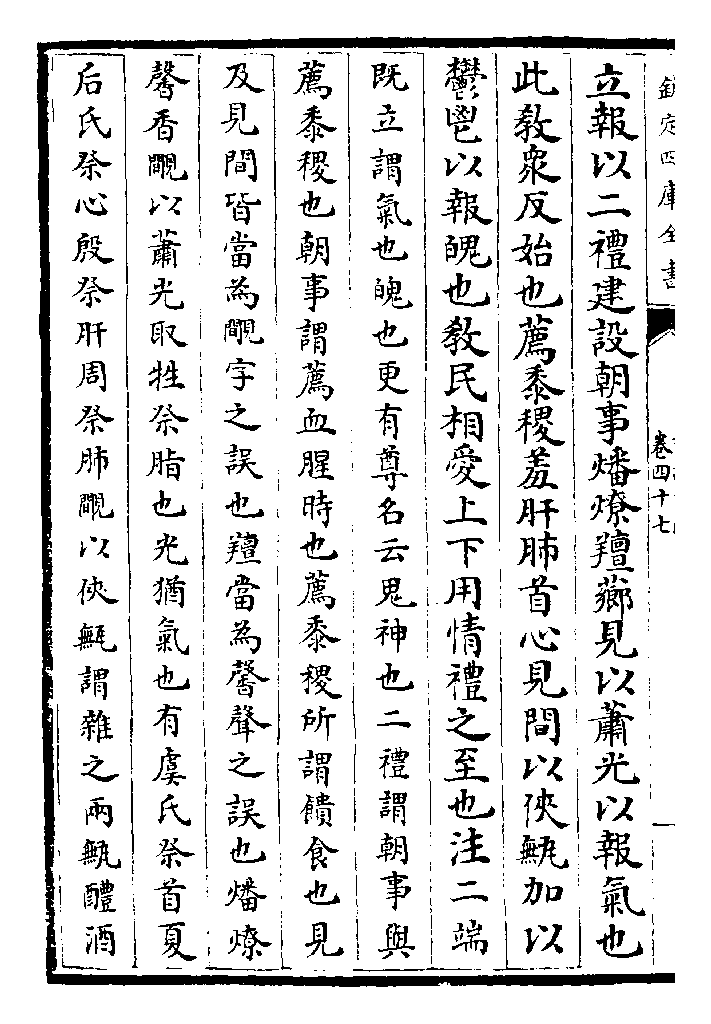 欽定四庫全書
卷四十七
立報以二禮建設朝事燔燎羶薌見以蕭光以報氣也
此教衆反始也薦黍稷羞肝肺首心見間以俠甒加以
鬱鬯以報魄也教民相愛上下用情禮之至也注二端
既立謂氣也魄也更有尊名云鬼神也二禮謂朝事與
薦黍稷也朝事謂薦血腥時也薦黍稷所謂饋食也見
及見間皆當為覸字之誤也羶當為馨聲之誤也燔燎
馨香覸以蕭光取牲祭脂也光猶氣也有虞氏祭首夏
后氏祭心殷祭肝周祭肺覸以俠甒謂雜之兩甒醴酒